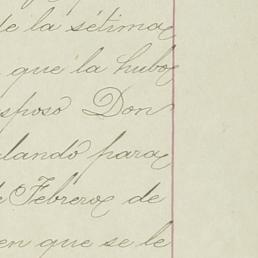 de la sétima
que la hubo
esposo Don
lando para
e Febrero de
en que se le